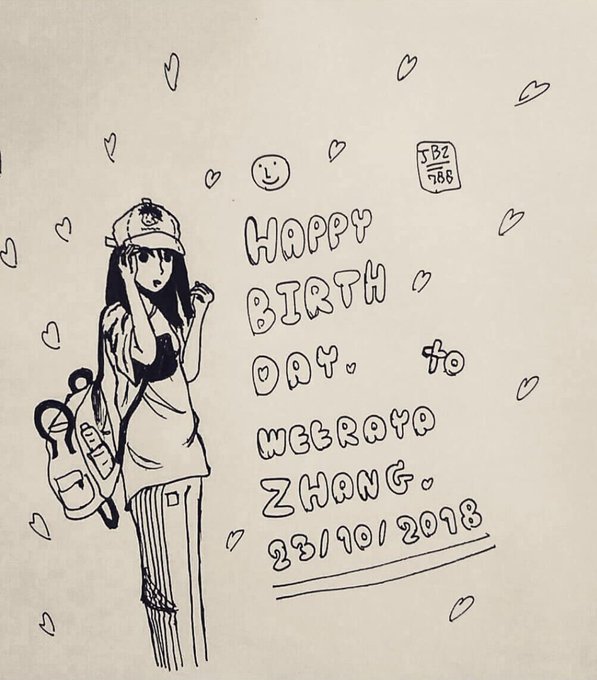 JBZ
788
HAPPY
BIRTH
DAY. to
WEERAYA
ZHANG.
23/10/2018